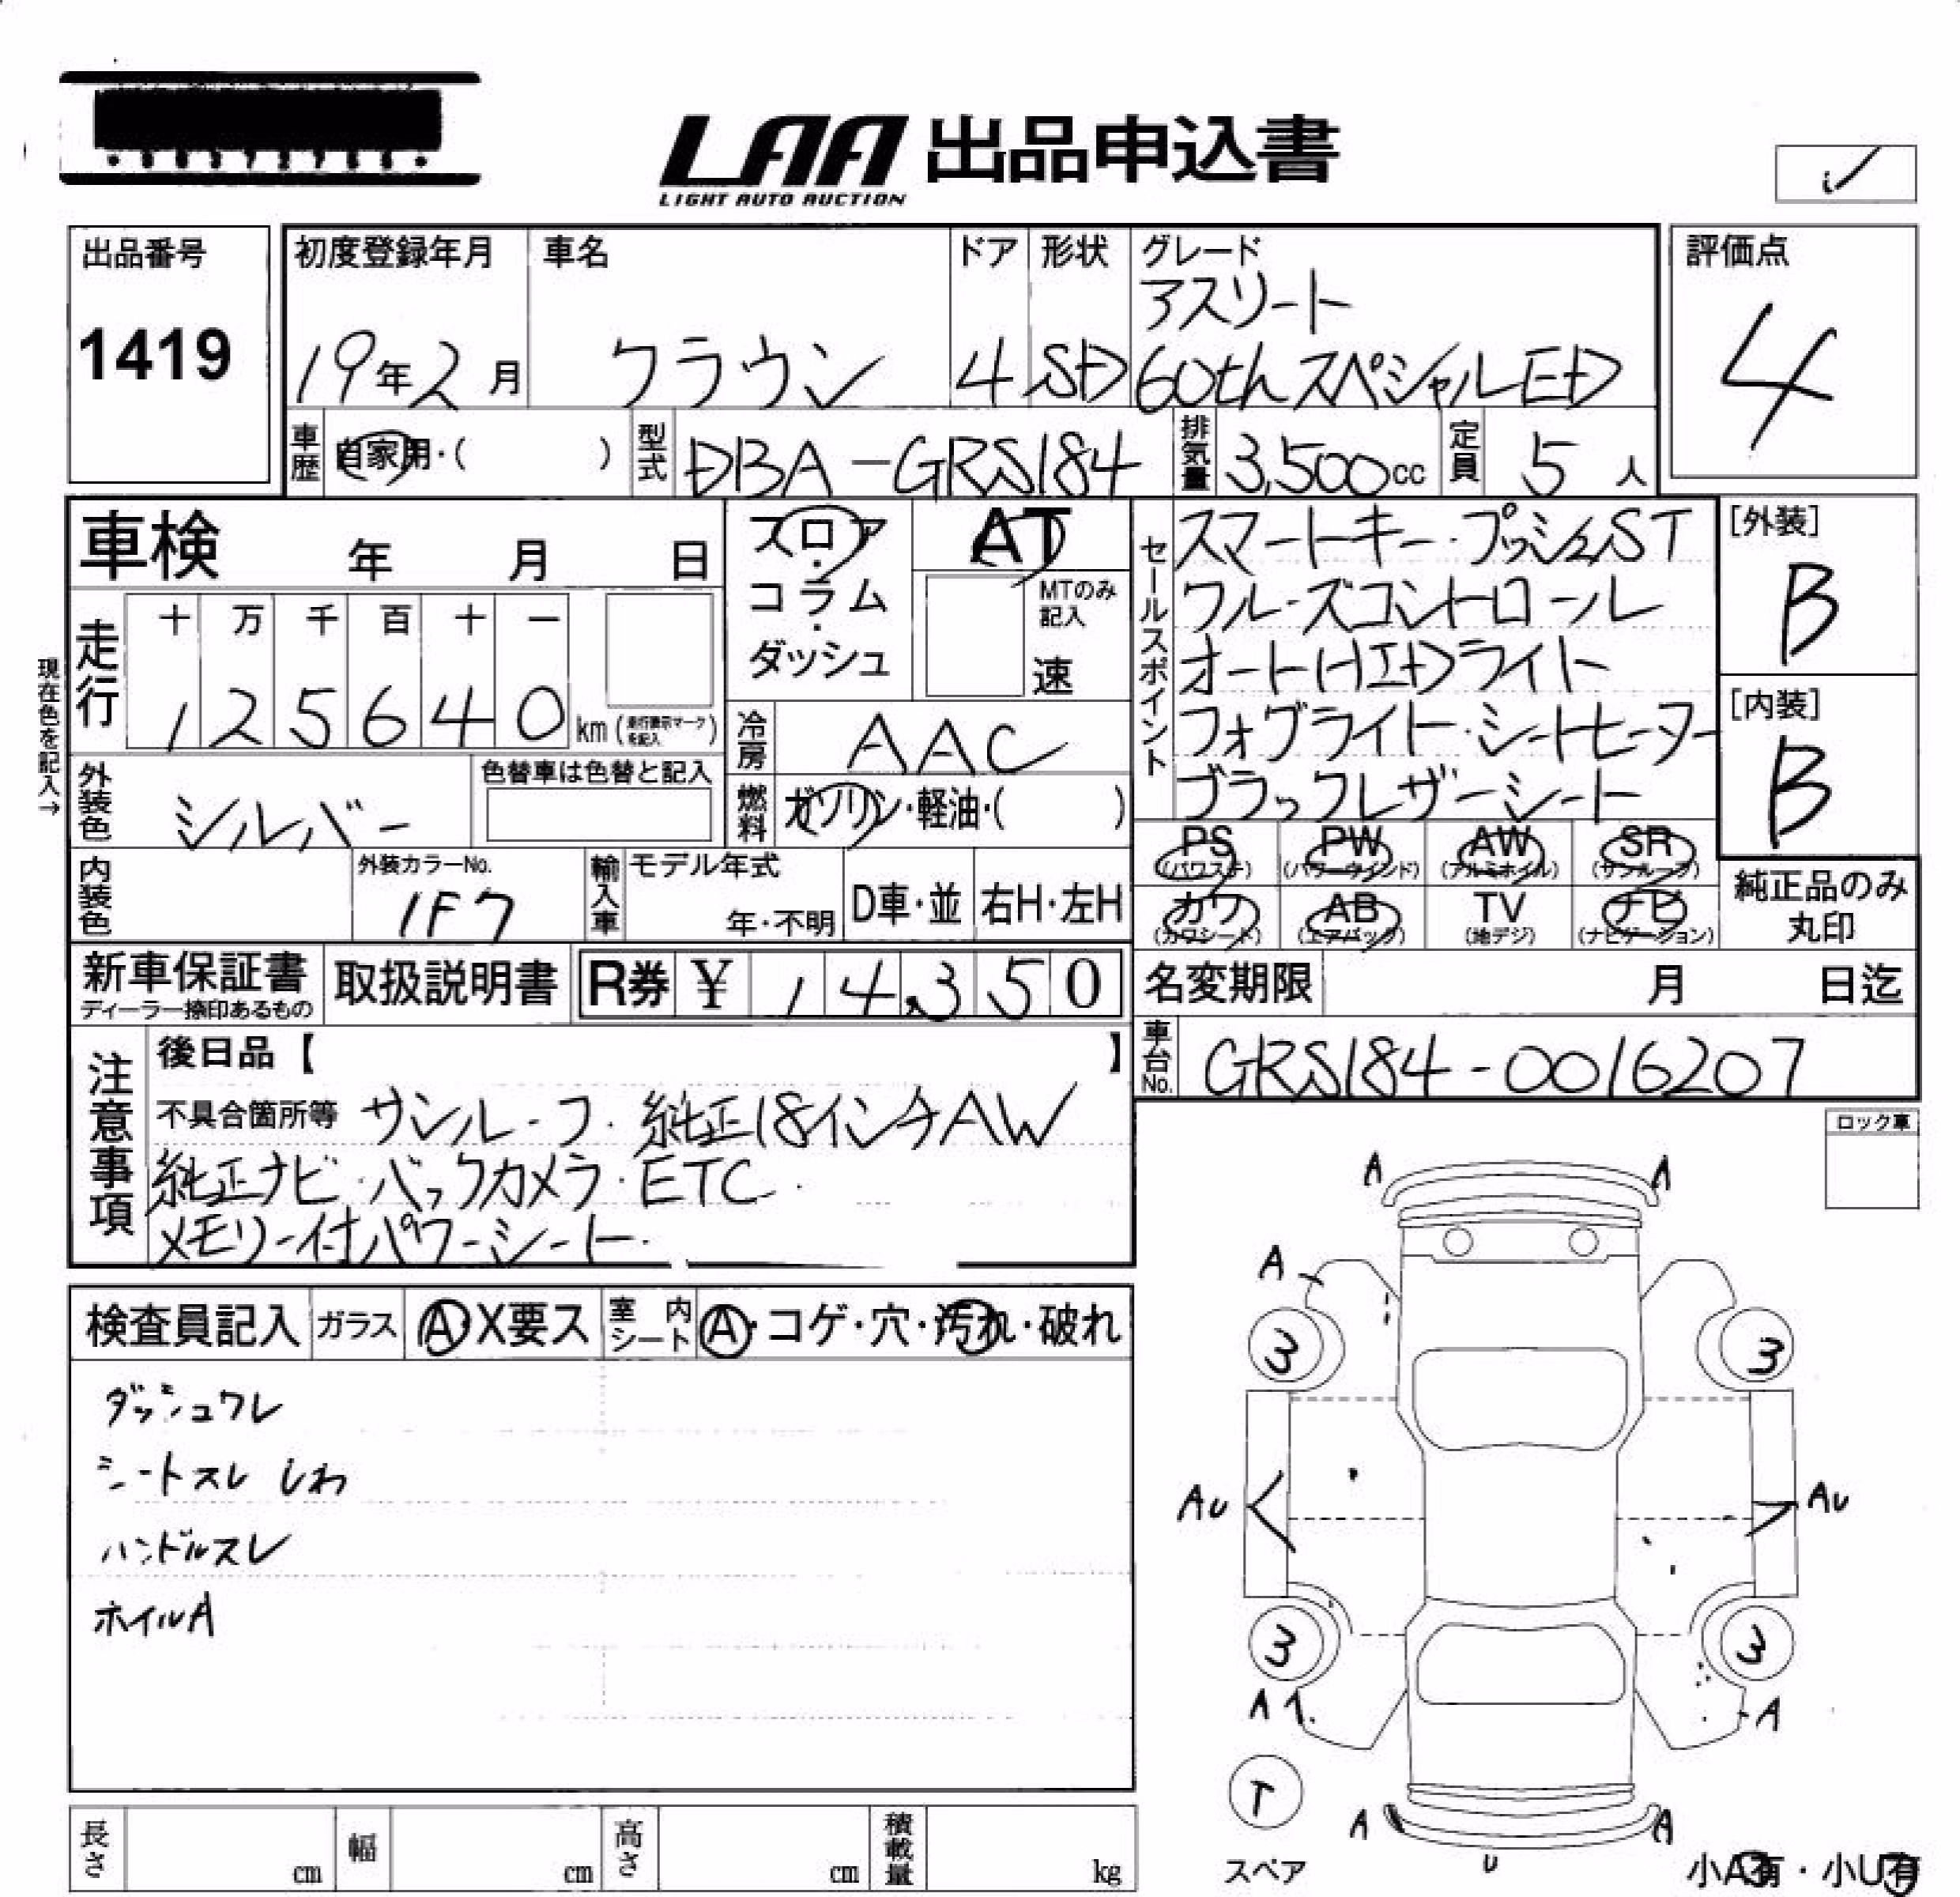 LAA 出品申込書
LIGHT AUTO AUCTION
出品番号
1419
初度登録年月
19年2月
車名
クラウン
ドア
4
形状
SD
グレード
アスリート
60th スペシャルED
評価点
4
車歴 自家用・( )
型式 DBA-GRS184
排気量 3,500cc
定員 5人
車検 年 月 日
フロア・コラム・ダッシュ
AT
MTのみ記入
速
セールスポイント
スマートキー・プッシュST
クルーズコントロール
オートHIDライト
フォグライト・シートヒーター
ブラックレザーシート
[外装]
B
[内装]
B
現在色を記入→
走行
十 万 千 百 十 一
1 2 5 6 4 0 km (走行表示マークを記入)
冷房 AAC
外装色 シルバー
色替車は色替と記入
燃料 ガソリン・軽油・( )
PS (パワステ)
PW (パワーウインド)
AW (アルミホイル)
SR (サンルーフ)
カワ (カワシート)
AB (エアバック)
TV (地デジ)
ナビ (ナビゲーション)
純正品のみ丸印
内装色
外装カラーNo.
1F7
輸入車
モデル年式
年・不明
D車・並
右H・左H
新車保証書
ディーラー捺印あるもの
取扱説明書
R券 ¥ 14,350
名変期限 月 日迄
車台No. GRS184-0016207
注意事項
後日品【 】
不具合箇所等 サンルーフ・純正18インチAW
純正ナビ・バックカメラ・ETC・
メモリー付パワーシート・
ロック車
検査員記入
ガラス A・X要ス
室内シート A・コゲ・穴・汚れ・破れ
ダッシュワレ
シートスレ しわ
ハンドルスレ
ホイルA
A A
A
3 3
AU AU
3 3
A A
T
スペア
A A
U
小A有・小U有
長さ cm
幅 cm
高さ cm
積載量 kg